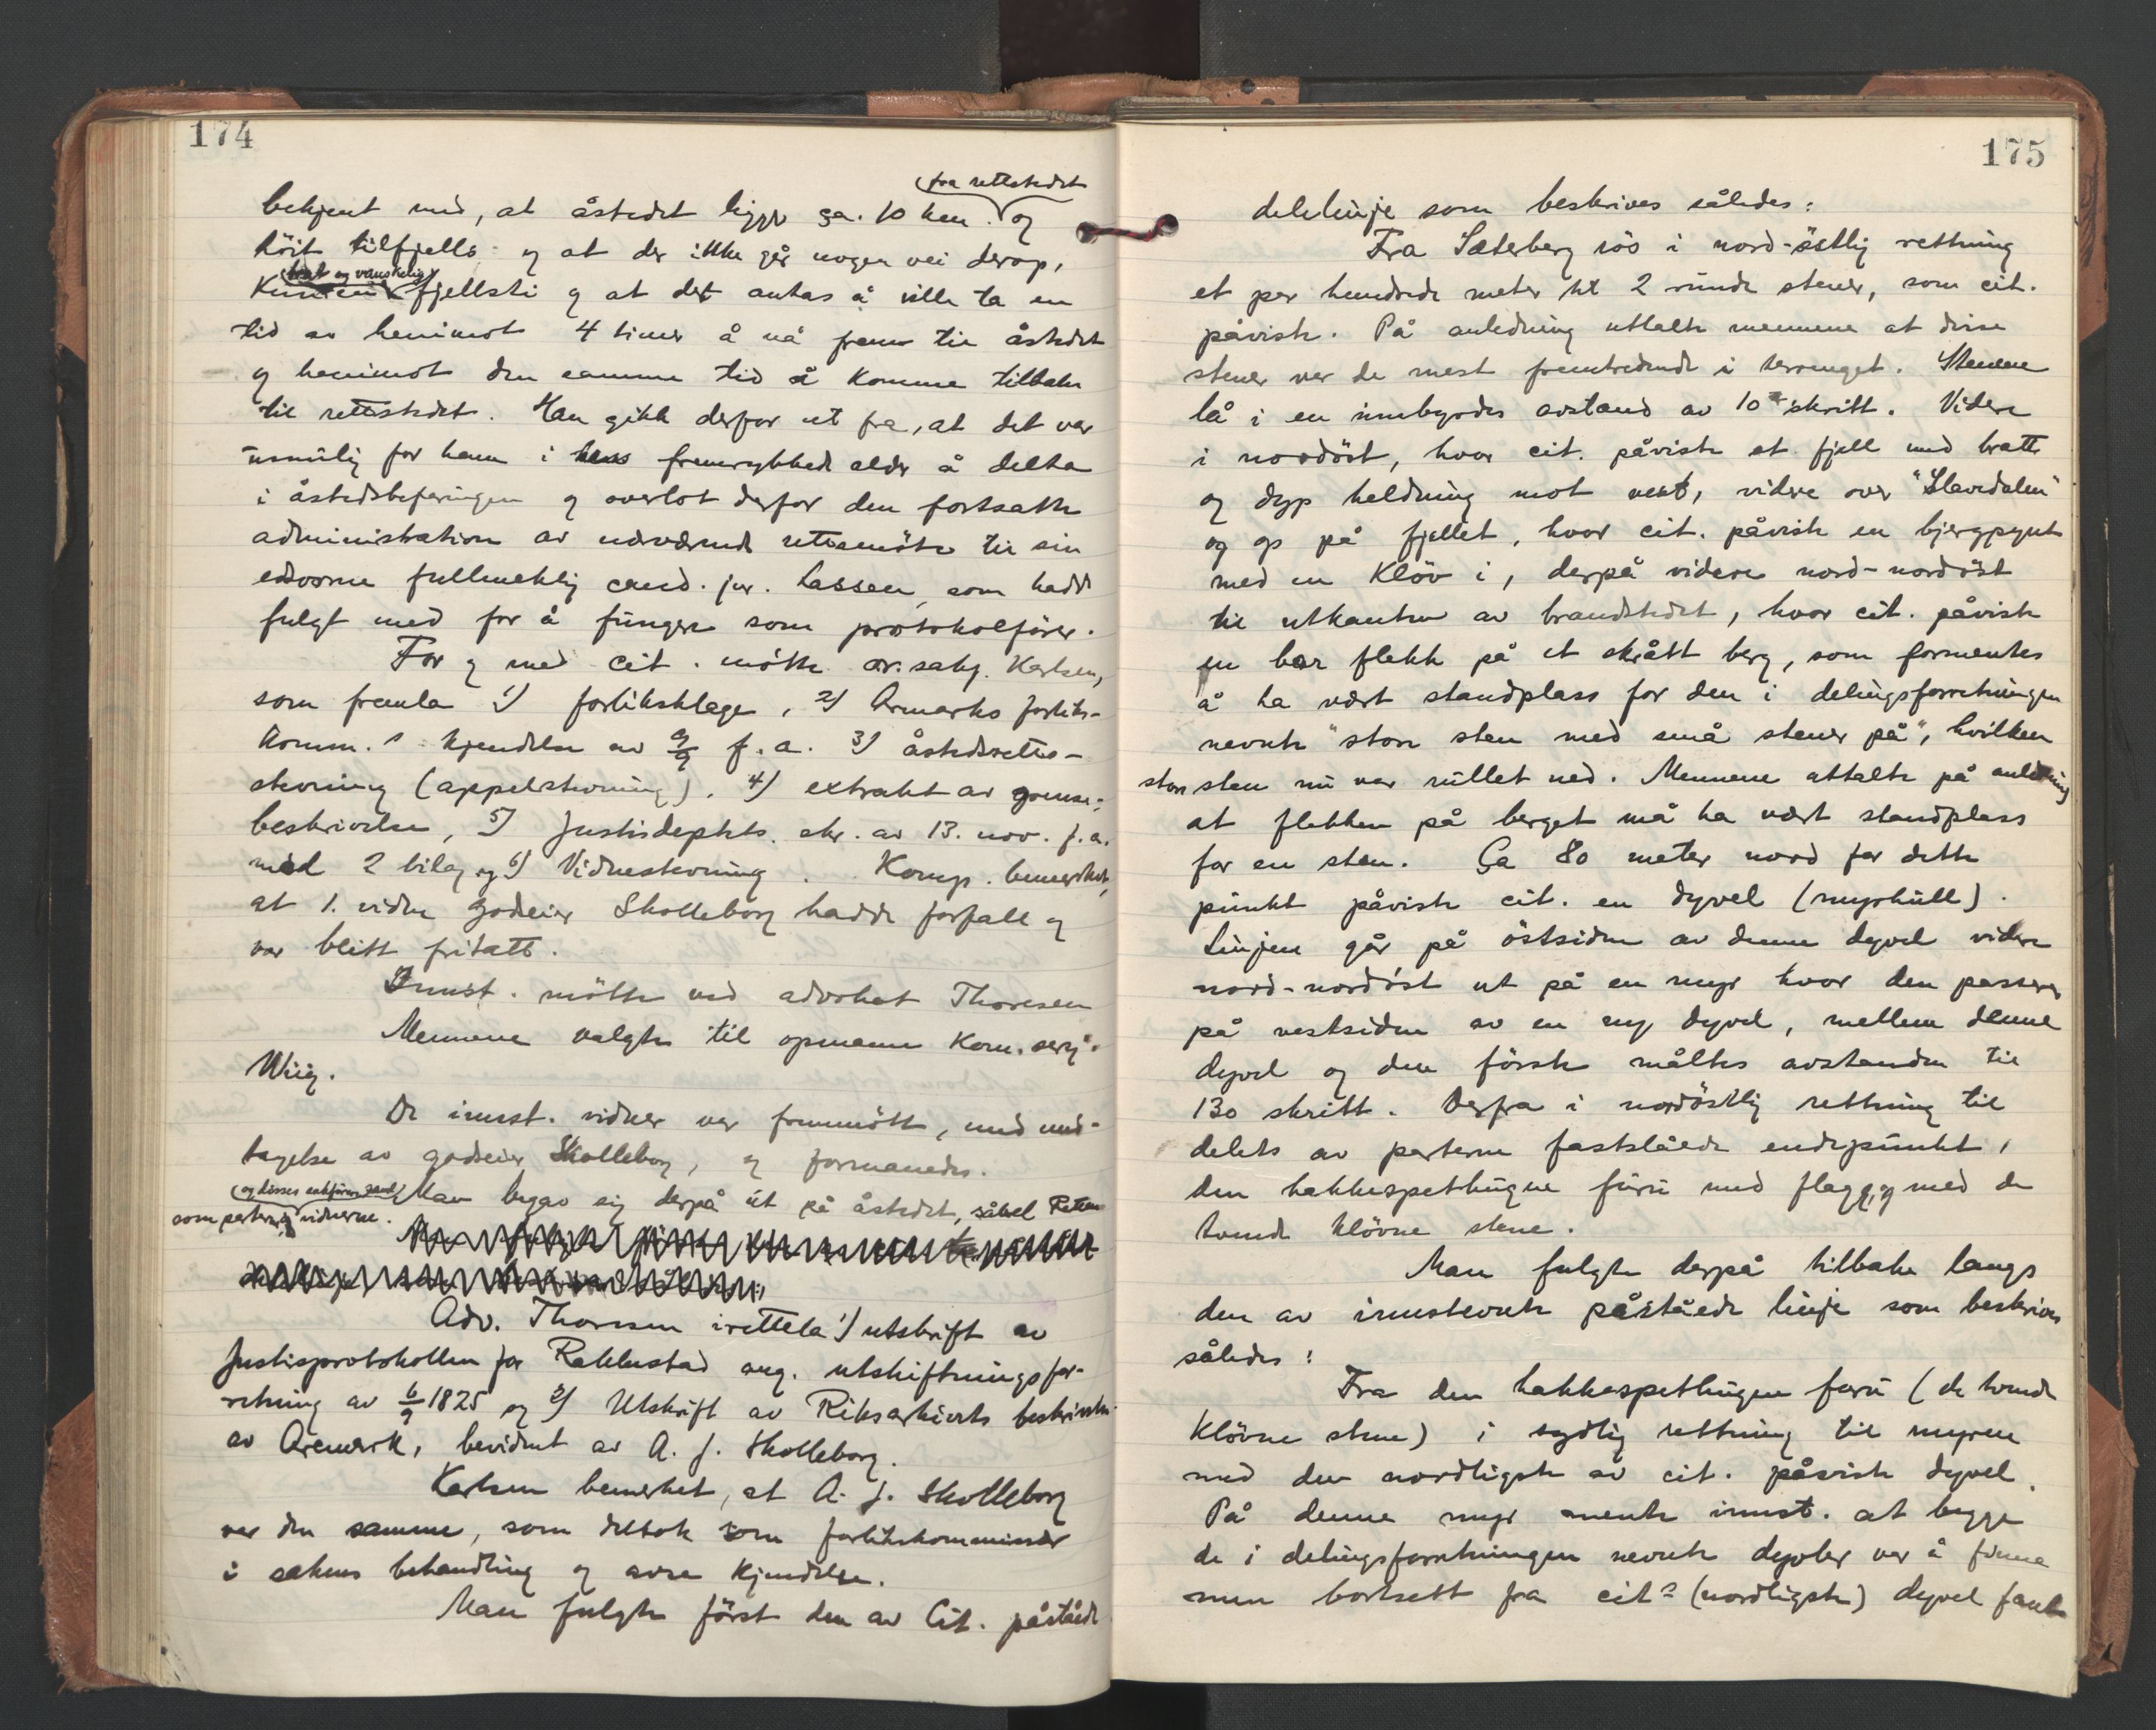 174
fra rettstedet
bekjent med, at åstedet ligger ca. 10 km. og
höit tilfjells og at der ikke går nogen vei derop,
bratt og vanskelig
Kun en fjellsti og at det antas å ville ta en
tid av henimot 4 timer å nå frem til åstedet
og henimot den samme tid å komme tilbake
til rettsstedet. Han gikk derfor ut fra, at det var
umulig for ham i hans fremrykkede alder å delta
i åstedsbefaringen og overlot derfor den fortsatte
administration av nærværende rettsmöte til sin
edsvorne fullmektig cand. jur. Lassen, som hadde
fulgt med for å fungere som protokolförer.
For og med cit. mötte o.r.sakf. Karlsen,
som fremla 1) forliksklage, 2) Aremarks forliks-
komm.s kjendelse av 9/9 f.a. 3) åstedsretts-
stevning (appelstevning), 4) extrakt av grense-
beskrivelse, 5) Justisdeptets skr. av 13. nov. f.a.
med 2 bilag og 6) Vidnestevning. Komp. bemerket,
at 1. vidne godseier Skolleborg hadde forfall og
var blitt fritatt.
Innst. mötte ved advokat Thoresen
Mennene valgte til opmann Korn. serg.
Wiig.
De innst. vidner var fremmött, med und-
tagelse av godseier Skolleborg, og formanedes.
Man begav sig derpå ut på åstedet, såvel Retten
som parterne og disses sakförere samt vidnerne.
Adv. Thoresen irettela 1) utskrift av
Justisprotokollen for Rakkestad ang. utskiftningsfor-
retning av 6/9 1825 og 2) Utskrift av Riksarkivets beskrivelse
av Aremark, bevidnet av A. J. Skolleborg.
Karlsen bemerket, at A. J. Skolleborg
var den samme, som deltok som forlikskommissær
i sakens behandling og avsa kjendelse.
Man fulgte först den av Cit. påståede
175
delelinje som beskrives således:
Fra Sæterberg rös i nord-östlig rettning
et par hundrede meter til 2 runde stener, som cit.
påviste. På anledning uttalte mennene at disse
stener var de mest fremtredende i terrenget. Stenene
lå i en innbyrdes avstand av 10 skritt. Videre
i nordöst, hvor cit. påviste et fjell med bratt
og dyp heldning mot vest, videre over "Slavedalen"
og op på fjellet, hvor cit. påviste en bjergpynt
med en Klöv i, derpå videre nord-nordöst
til utkanten av brandstedet, hvor cit. påviste
en bar flekk på et skrått berg, som formentes
å ha vært standplass for den i delingsforretningen
nevnte "stor sten med små stener på", hvilken
store sten nu var rullet ned. Mennene uttalte på anledning
at flekken på berget må ha vært standplass
for en sten. Ca 80 meter nord for dette
punkt påviste cit. en dyvel (myrhull).
Linjen går på östsiden av denne dyvel videre
nord-nordöst ut på en myr hvor den passerer
på vestsiden av en ny dyvel, mellem denne
dyvel og den förste måltes avstanden til
130 skritt. Derfra i nordöstlig rettning til
delets av parterne fastslåede endepunkt,
den hakkespetthugne furu med flagg, og med de
tvende klövne stene.
Man fulgte derpå tilbake langs
den av innstevnte påståede linje som beskrives
således:
Fra den hakkespetthugne furu (de tvende
klövne stene) i sydlig rettning til myren
med den nordligste av cit. påviste dyvel.
På denne myr mente innst. at begge
de i delingsforretningen nevnte dyvler var å finne
men bortsett fra cits (nordligste) dyvel fant